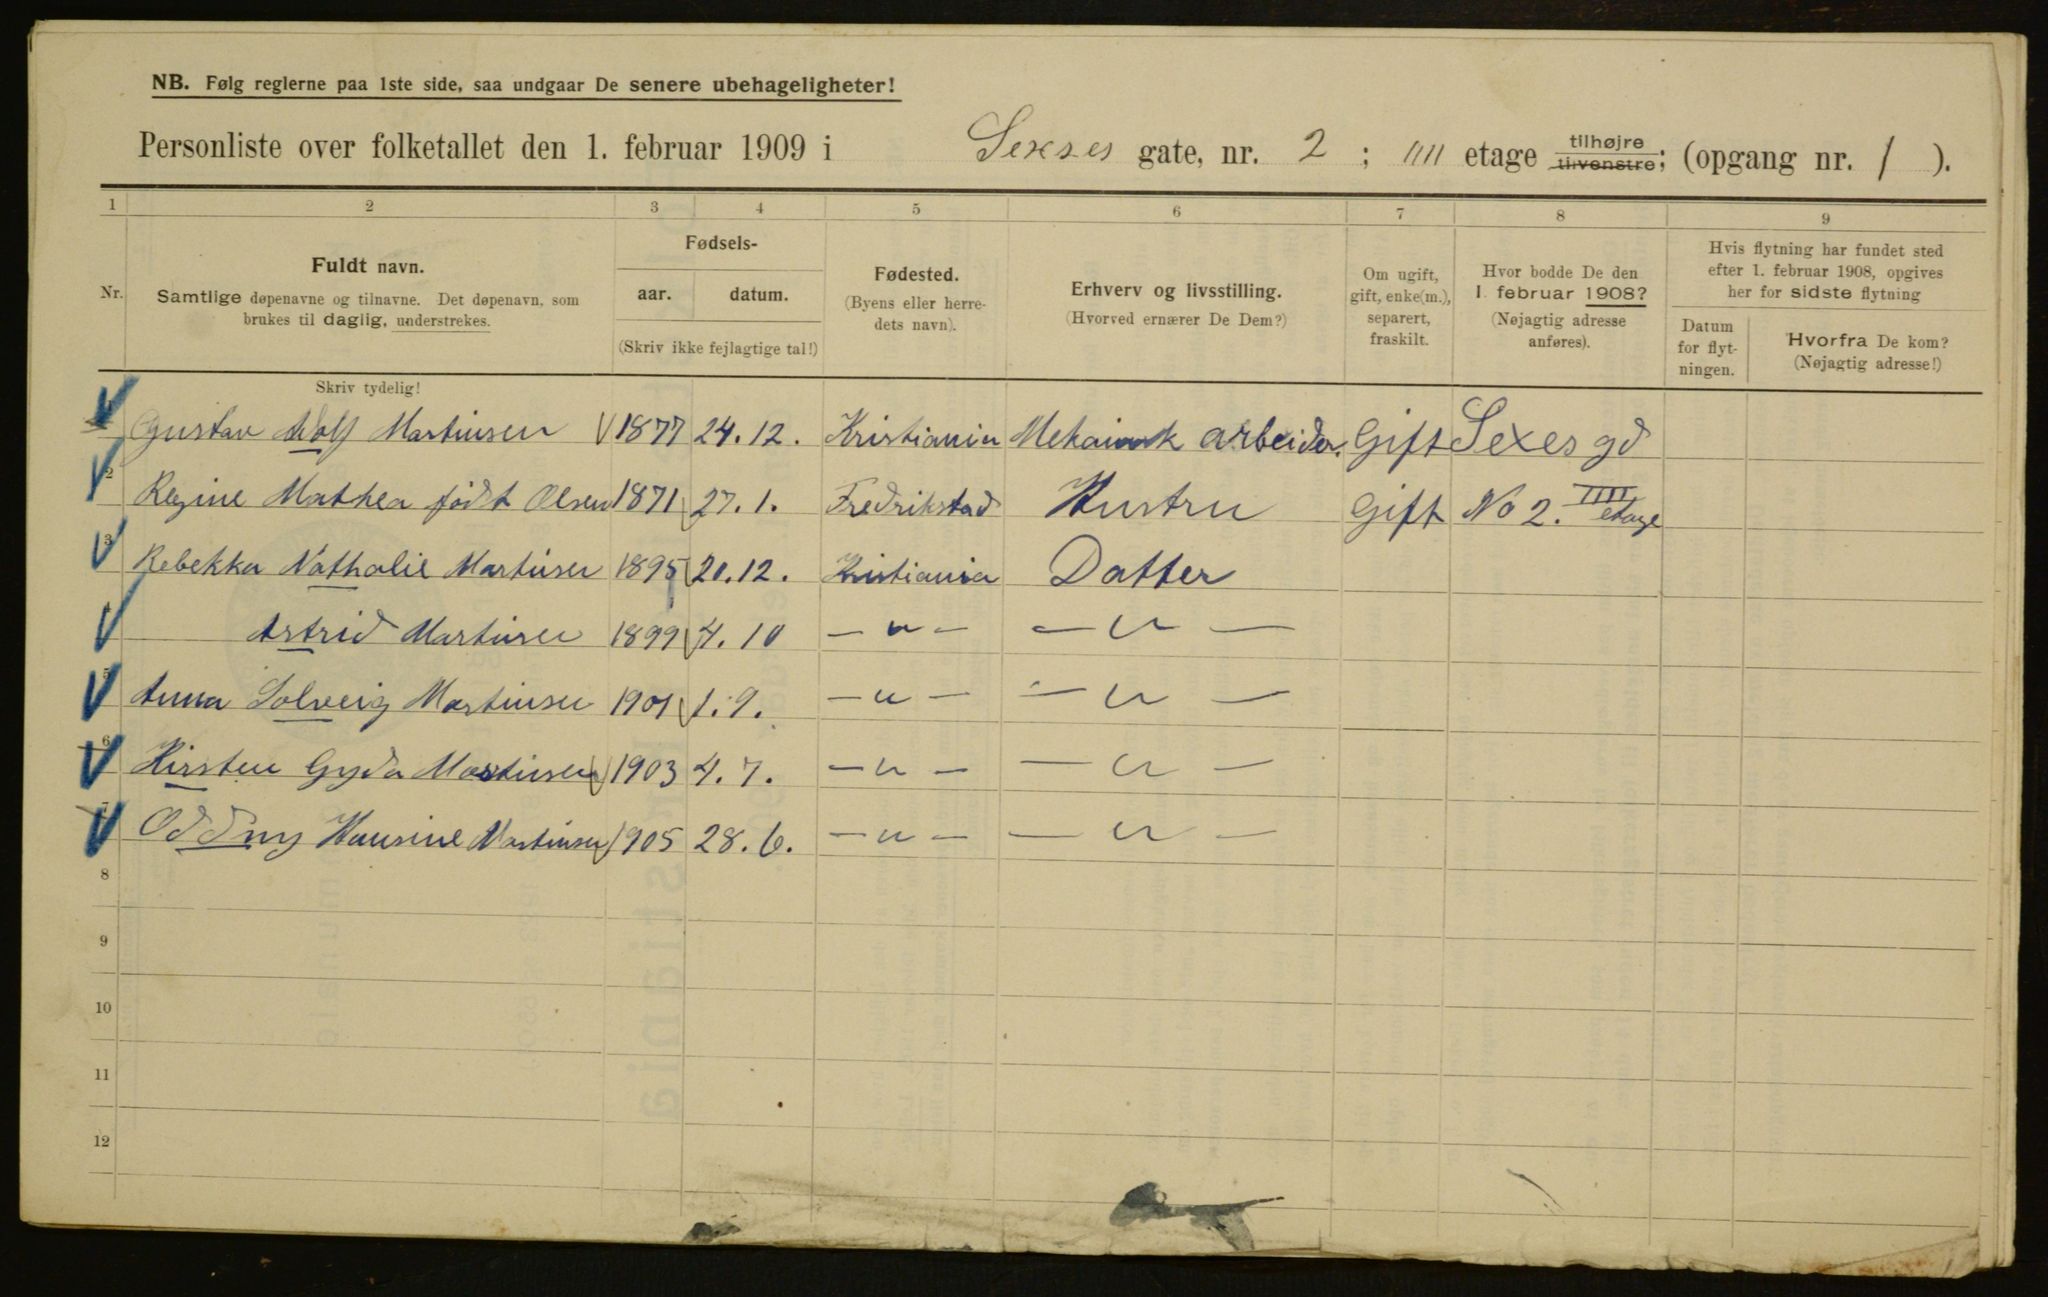 NB. Følg reglerne paa 1ste side, saa undgaar De senere ubehageligheter!
Personliste over folketallet den 1. februar 1909 i Sexses gate, nr. 2 ; IIII etage tilhøjre tilvenstre; (opgang nr. 1 ).
1 2 3 4 5 6 7 8 9
Nr.
Fuldt navn.
Samtlige døpenavne og tilnavne. Det døpenavn, som
brukes til daglig, understrekes.
Skriv tydelig!
Fødsels-
aar. datum.
(Skriv ikke fejlagtige tal!)
Fødested.
(Byens eller herre-
dets navn).
Erhverv og livsstilling.
(Hvorved ernærer De Dem?)
Om ugift,
gift, enke(m.),
separert,
fraskilt.
Hvor bodde De den
1. februar 1908?
(Nøjagtig adresse
anføres).
Hvis flytning har fundet sted
efter 1. februar 1908, opgives
her for sidste flytning
Datum
for flyt-
ningen.
Hvorfra De kom?
(Nøjagtig adresse!)
Gustav Adolf Martinsen 1877 24.12. Kristiania Mekanisk arbeider. Gift Sexes gd
2 Regine Mathea født Olsen 1871 27.1. Fredrikstad Hustru Gift No 2. IIII etage
3 Rebekka Nathalie Martinsen 1895 20.12. Kristiania Datter
Astrid Martinsen 1899 4.10 — " — — " —
5 Anna Solveig Martinsen 1901 1.9. — " — — " —
6 Kirsten Gyda Martinsen 1903 4.7. — " — — " —
7 Oddny Hansine Martinsen 1905 28.6. — " — — " —
8
9
10
11
12